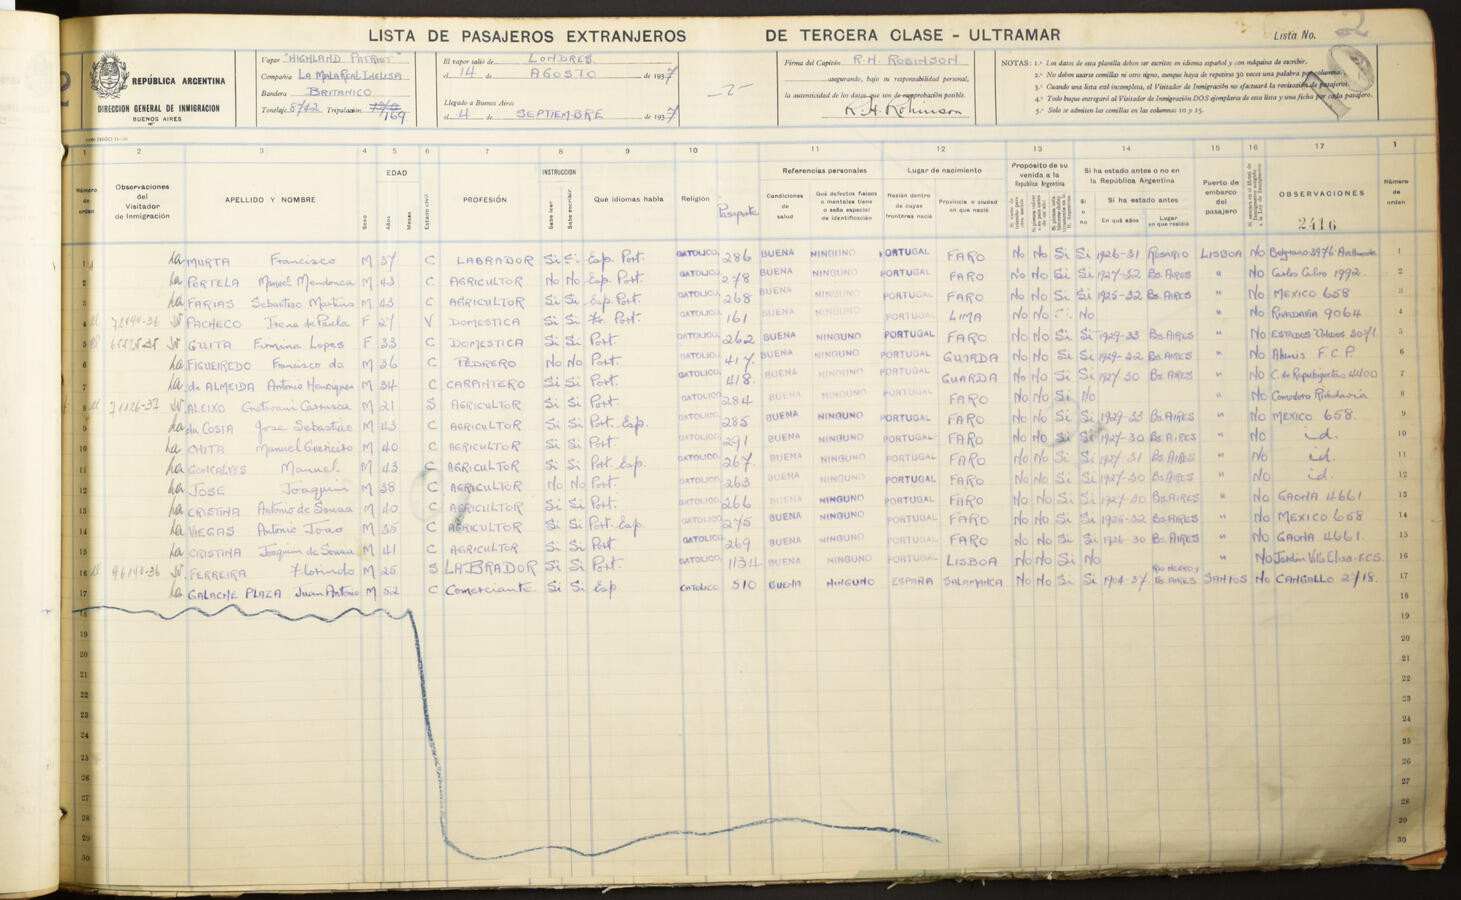 LISTA DE PASAJEROS EXTRANJEROS DE TERCERA CLASE - ULTRAMAR Lista No. 2
REPÚBLICA ARGENTINA
DIRECCIÓN GENERAL DE INMIGRACIÓN
BUENOS AIRES
Vapor "HIGHLAND PATRIOT"
Compañia LA MALA REAL INGLESA
Bandera BRITANICO
Tonelaje 8742 Tripulación 169
El vapor salió de LONDRES
el 14 de AGOSTO de 1937
Llegado a Buenos Aires
el 4 de SEPTIEMBRE de 1937
-2-
Firma del Capitán R.H. ROBINSON
asegurando, bajo su responsabilidad personal,
la autenticidad de los datos que son de comprobación posible.
R.H. Robinson
NOTAS: 1.ª Los datos de esta planilla deben ser escritos en idioma español y con máquina de escribir.
2.ª No deben usarse comillas ni otro signo, aunque haya de repetirse 30 veces una palabra por columna.
3.ª Cuando una lista esté incompleta, el Visitador de Inmigración no efectuará la revisación de pasajeros.
4.ª Todo buque entregará al Visitador de Inmigración DOS ejemplares de esta lista y una ficha por cada pasajero.
5.ª Solo se admiten las comillas en las columnas 10 y 15.
1 2 3 4 5 6 7 8 9 10 11 12 13 14 15 16 17 1
Número de orden
Observaciones del Visitador de Inmigración
APELLIDO Y NOMBRE
Sexo
EDAD
Años
Meses
Estado civil
PROFESIÓN
INSTRUCCION
Sabe leer
Sabe escribir
Qué idiomas habla
Religión
Pasaporte
Referencias personales
Condiciones de salud
Qué defectos físicos o mentales tiene o seña especial de identificación
Lugar de nacimiento
Nación dentro de cuyas fronteras nació
Provincia o ciudad en que nació
Propósito de su venida a la República Argentina
Si ha estado antes o no en la República Argentina
Si o no
Si ha estado antes
En qué años
Lugar en que residió
Puerto de embarco del pasajero
OBSERVACIONES
2416
Número de orden
1 MURTA Francisco M 37 C LABRADOR Si Si Esp. Port. CATOLICO 286 BUENA NINGUNO PORTUGAL FARO No No Si Si 1926-31 ROSARIO LISBOA No Belgrano 3976 1
2 PORTELA Manuel Mendonca M 43 C AGRICULTOR No No Esp. Port. CATOLICO 278 BUENA NINGUNO PORTUGAL FARO No No Si Si 1927-32 Bs. AIRES " No Carlos Calvo 1992. 2
3 FARIAS Sebastiao Martins M 43 C AGRICULTOR Si Si Esp. Port. CATOLICO 268 BUENA NINGUNO PORTUGAL FARO No No Si Si 1925-32 Bs. AIRES " No MEXICO 658 3
4 PACHECO Irene de Paula F 27 V DOMESTICA Si Si Port. CATOLICO 161 BUENA NINGUNO PORTUGAL LIMA No No Si No " No RIVADAVIA 9064 4
5 GUITA Firmina Lopes F 33 C DOMESTICA Si Si Port. CATOLICO 262 BUENA NINGUNO PORTUGAL FARO No No Si Si 1929-33 Bs. AIRES " No ESTADOS UNIDOS 3071 5
6 FIGUEIREDO Francisco de M 36 C PEDRERO No No Port. CATOLICO 417 BUENA NINGUNO PORTUGAL GUARDA No No Si Si Bs. AIRES " No F.C.P. 6
7 de ALMEIDA Antonio Henriques M 34 C CARPINTERO Si Si Port. CATOLICO 418. BUENA NINGUNO PORTUGAL GUARDA No No Si Si 1927-30 Bs. AIRES " No 4400 7
8 71126-37 ALEIXO M 21 S AGRICULTOR Si Si Port. CATOLICO 284 BUENA NINGUNO PORTUGAL FARO No No Si No " No Comodoro Rivadavia 8
9 da COSTA Jose Sebastiao M 43 C AGRICULTOR Si Si Port. Esp. CATOLICO 285 BUENA NINGUNO PORTUGAL FARO No No Si Si 1929-33 Bs. AIRES " No MEXICO 658. 9
10 CHITA Manuel Guerreiro M 40 C AGRICULTOR Si Si Port. CATOLICO 291 BUENA NINGUNO PORTUGAL FARO No No Si Si 1927-30 Bs. AIRES " No id. 10
11 GONCALVES Manuel. M 43 C AGRICULTOR Si Si Port. Esp. CATOLICO 267. BUENA NINGUNO PORTUGAL FARO No No Si Si 1927-31 Bs. AIRES " No id. 11
12 JOSE Joaquim M 38 C AGRICULTOR No No Port. CATOLICO 263 BUENA NINGUNO PORTUGAL FARO No No Si Si 1927-30 Bs. AIRES " No id. 12
13 CRISTINA Antonio de Sousa M 40 C AGRICULTOR Si Si Port. CATOLICO 266 BUENA NINGUNO PORTUGAL FARO No No Si Si 1927-30 Bs. AIRES " No GAONA 4661 13
14 VIEGAS Antonio Joao M 35 C AGRICULTOR Si Si Port. Esp. CATOLICO 275 BUENA NINGUNO PORTUGAL FARO No No Si Si 1925-32 Bs. AIRES " No MEXICO 658 14
15 CRISTINA Joaquim de Sousa M 41 C AGRICULTOR Si Si Port. CATOLICO 269 BUENA NINGUNO PORTUGAL FARO No No Si Si 1926-30 Bs. AIRES " No GAONA 4661. 15
16 96140-36 FERREIRA Florindo M 25 S LABRADOR Si Si Port. CATOLICO 1134 BUENA NINGUNO PORTUGAL LISBOA No No Si No " No Jardin Villa Elisa-F.C.S. 16
17 GALACHE PLAZA Juan Antonio M 52 C Comerciante Si Si Esp. CATOLICO 510 BUENA NINGUNO ESPAÑA SALAMANCA No No Si Si 1904-37. RIO NEGRO y Bs. AIRES SANTOS No CANGALLO 2718. 17
18 18
19 19
20 20
21 21
22 22
23 23
24 24
25 25
26 26
27 27
28 28
29 29
30 30